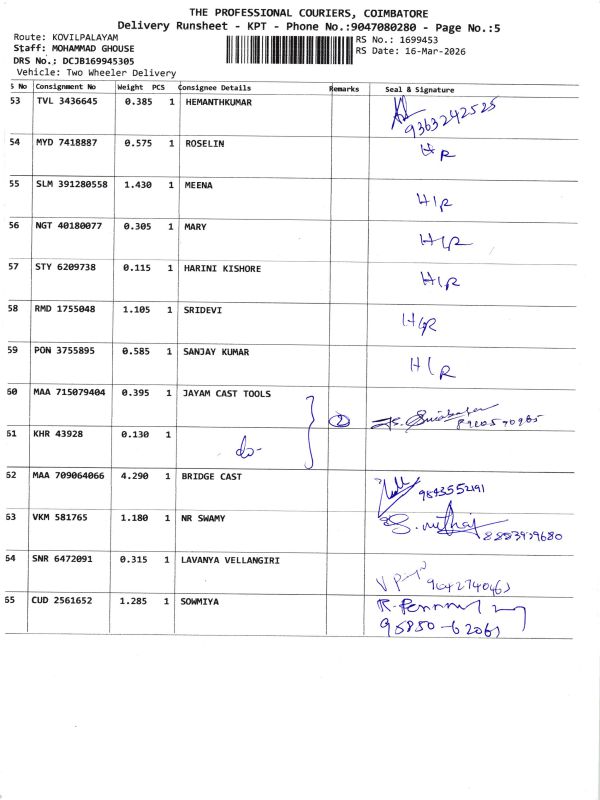 THE PROFESSIONAL COURIERS, COIMBATORE
Delivery Runsheet - KPT - Phone No.:9047080280 - Page No.:5
Route: KOVILPALAYAM
RS No.: 1699453
Staff: MOHAMMAD GHOUSE
RS Date: 16-Mar-2026
DRS No.: DCJB169945305
Vehicle: Two Wheeler Delivery
S No Consignment No Weight PCS Consignee Details Remarks Seal & Signature
53 TVL 3436645 0.385 1 HEMANTHKUMAR
9363242525
54 MYD 7418887 0.575 1 ROSELIN
55 SLM 391280558 1.430 1 MEENA
56 NGT 40180077 0.305 1 MARY
57 STY 6209738 0.115 1 HARINI KISHORE
58 RMD 1755048 1.105 1 SRIDEVI
59 PON 3755895 0.585 1 SANJAY KUMAR
60 MAA 715079404 0.395 1 JAYAM CAST TOOLS
2
61 KHR 43928 0.130 1 do-
62 MAA 709064066 4.290 1 BRIDGE CAST
9843552191
63 VKM 581765 1.180 1 NR SWAMY
64 SNR 6472091 0.315 1 LAVANYA VELLANGIRI
65 CUD 2561652 1.285 1 SOWMIYA